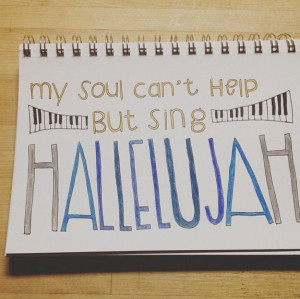 my soul can't Help
But sing
HALLELUJAH